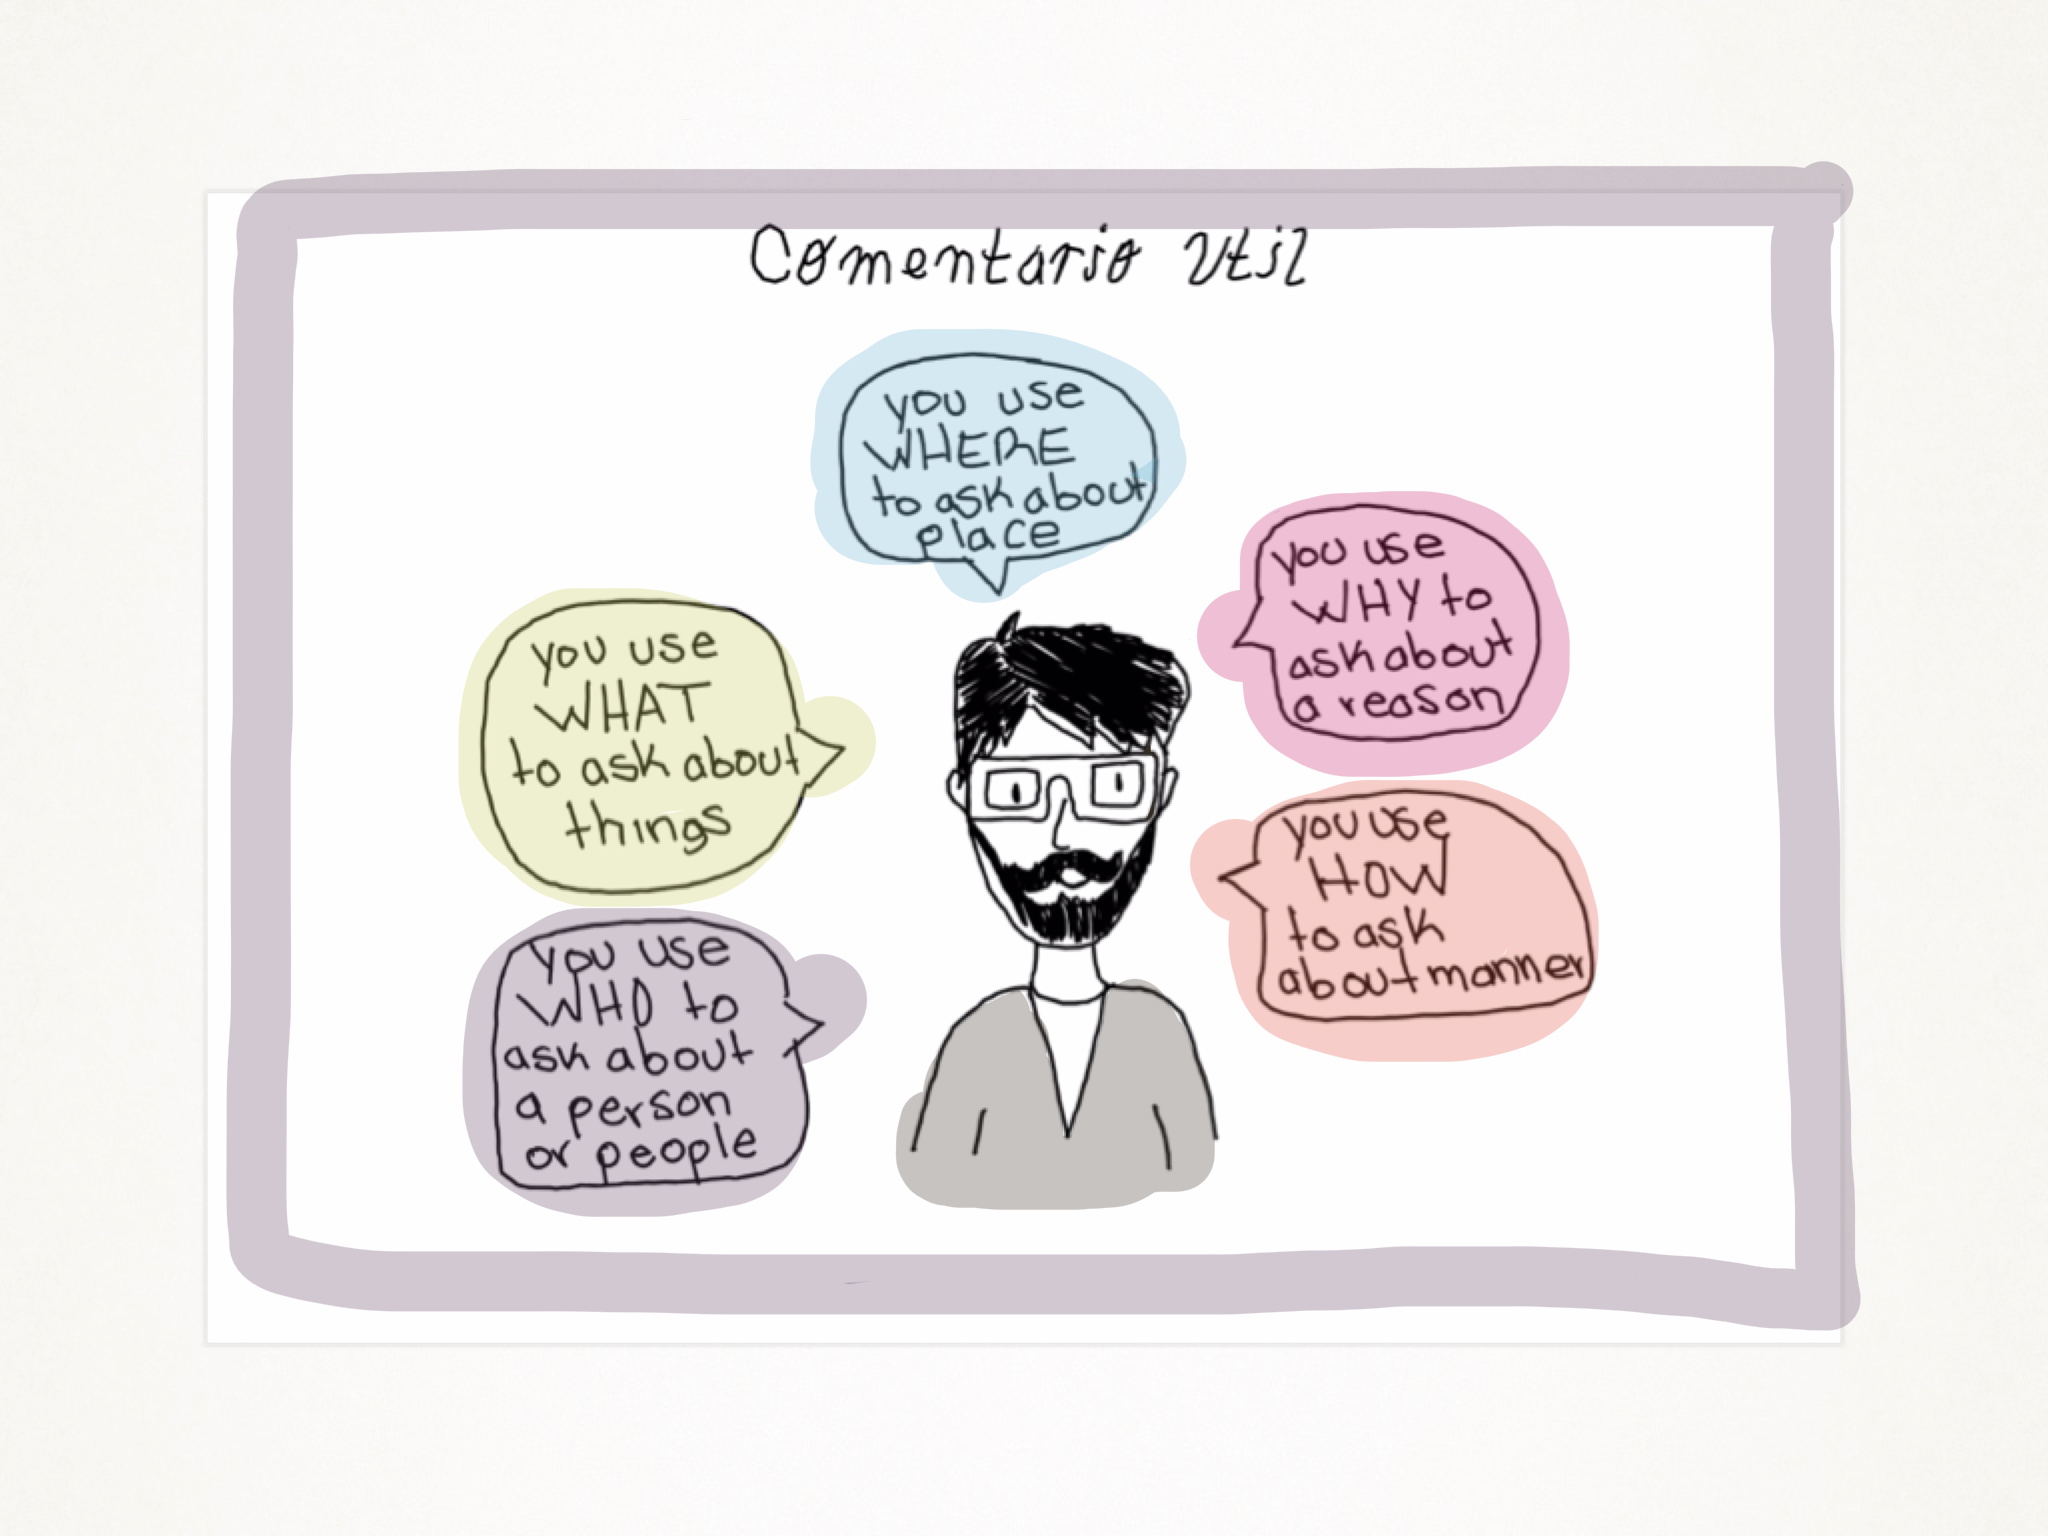 Comentario Util
you use
WHERE
to ask about
place
you use
WHY to
ask about
a reason
you use
WHAT
to ask about
things
you use
HOW
to ask
about manner
you use
WHO to
ask about
a person
or people